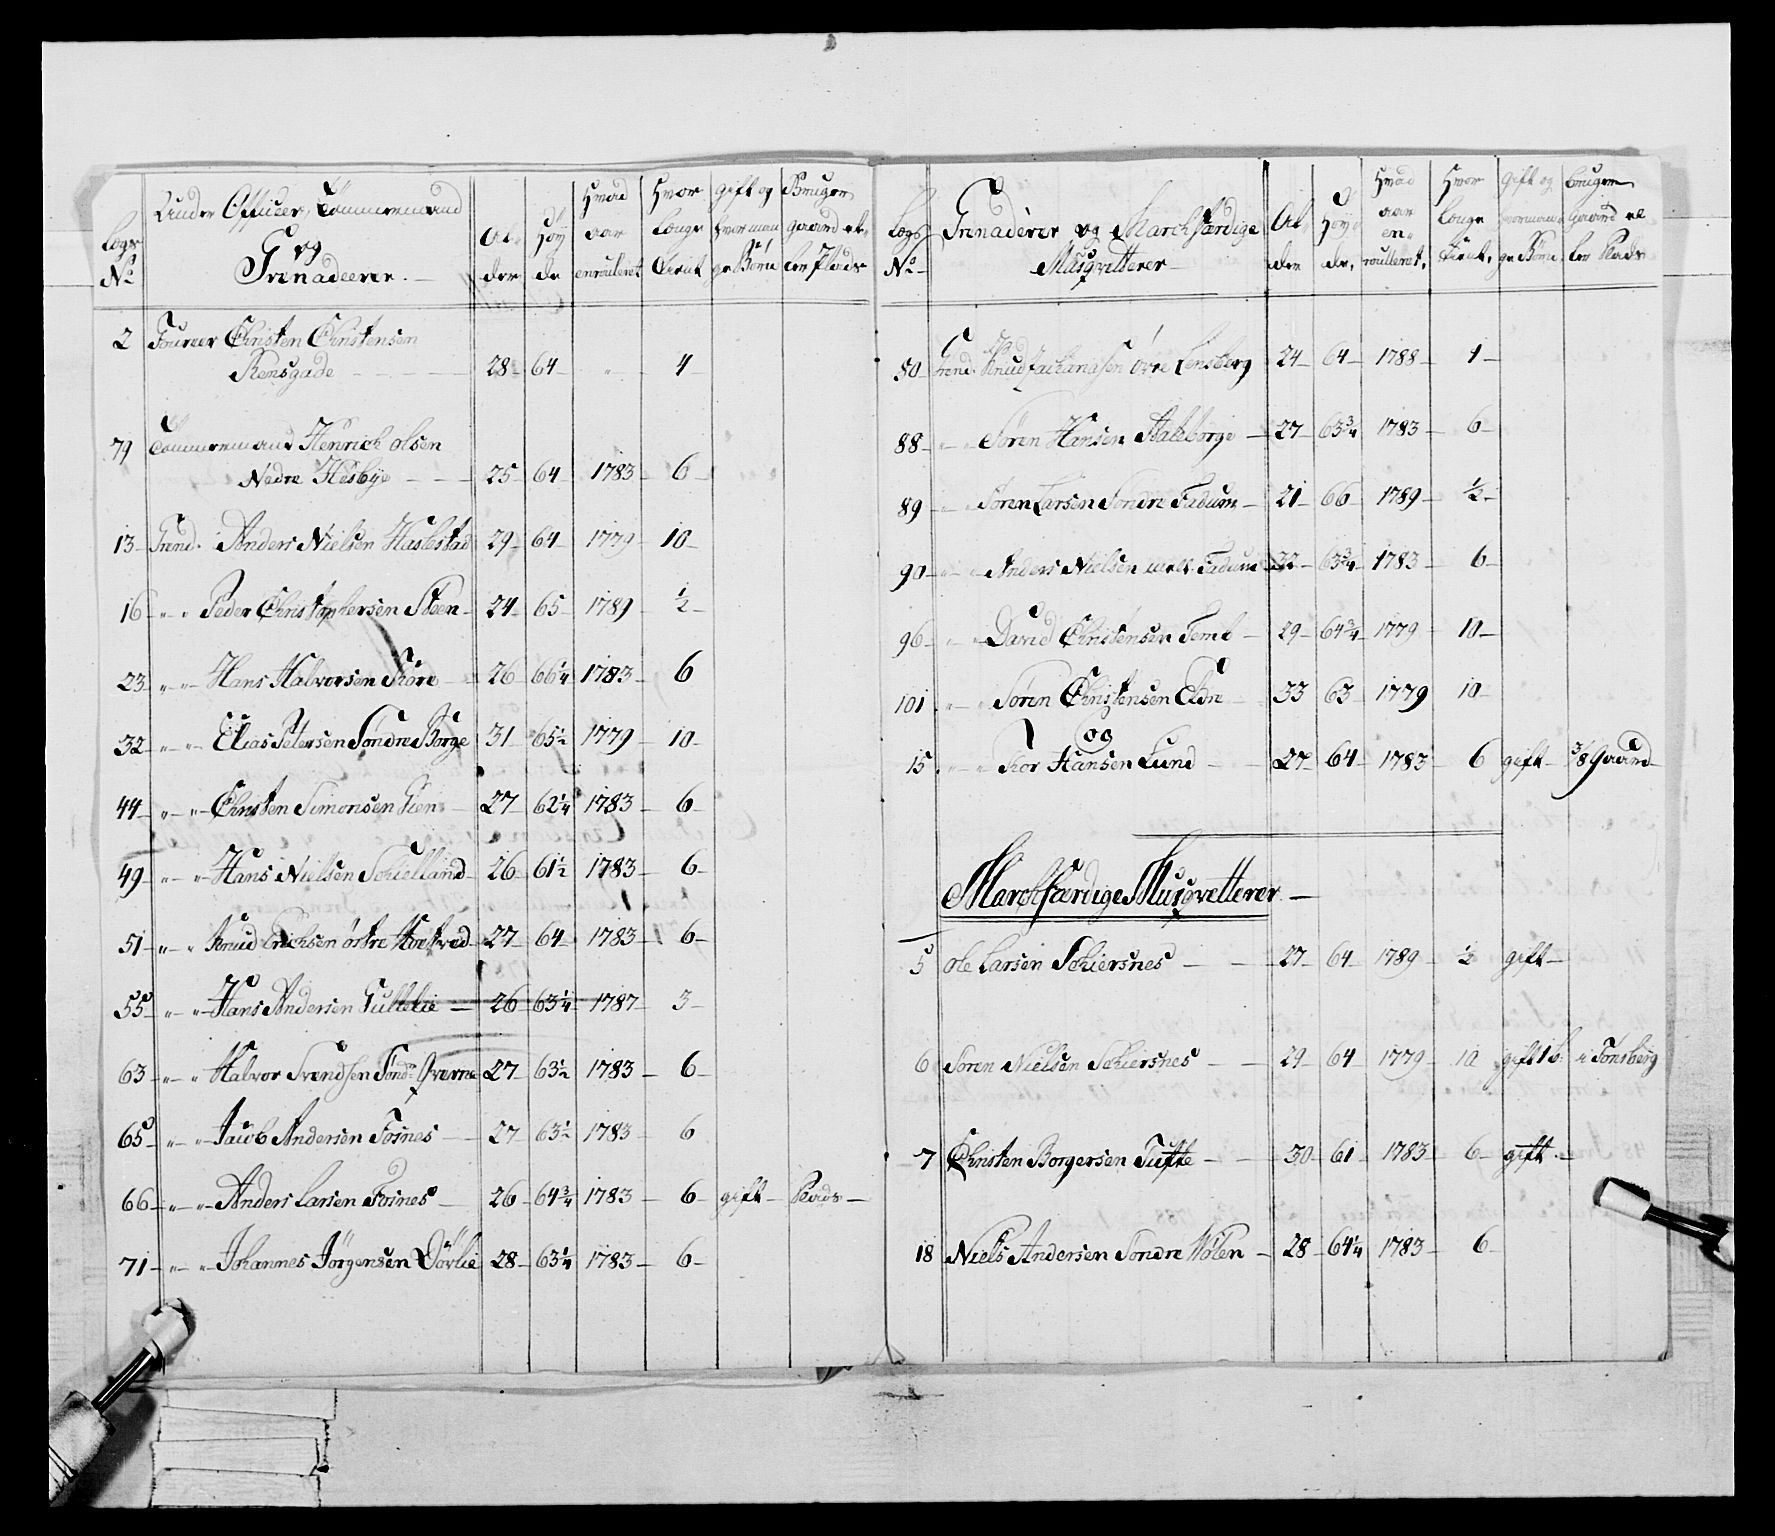 Lægs No | Under Officer, Tømmermænd og Grenadeerer. | Alder | Høyde | Hvad aar enroulleret | Hvor længe tient | gift og hvormange Børn | Bruger gaard eller Plads
2 Foureer Christen Christensen
Rensgade 28 64 " 4
79 Tømmermand Henrich Olsen
Nedre Hesbye 25 64 1783 6
13 Grend. Anders Nielsen Haslestad 29 64 1779 10
16 " " Peder Christophersen Steen 24 65 1789 ½
23 " " Hans Halvorsen Kiøre 26 66¼ 1783 6
32 " " Elias Petersen Søndre Borge 31 65½ 1779 10
44 " " Christen Simonsen Gien 27 62¼ 1783 6
49 " " Hans Nielsen Schielland 26 61½ 1783 6
51 " " Knud Erichsen østre 27 64 1783 6
55 " " Hans Andersen Gullelie 26 63¼ 1787 3
63 " " Halvor Svendsen Sønd. Qverne 27 63½ 1783 6
65 " " Jacob Andersen Fosnes 27 63½ 1783 6
66 " " Anders Larsen Fosnes 26 64¾ 1783 6 gift Plads
71 " " Johannes Jörgensen Dövlie 28 63¼ 1783 6
Lægs No | Grenaderer og Marchfærdige Musqvetterer | Alder | Høyde. | Hvad aar enroulleret. | Hvor længe tient. | gift og hvormange Børn | bruger Gaard eller Plads
80 Grend. Knud Øvre Linsberg 24 64 1788 1
88 " " Søren Hansen Staleborge 27 63¾ 1783 6
89 " " Søren Larsen Søndre Fadum 21 66 1789 ½
90 " " Anders Nielsen Fadum 32 63¾ 1783 6
96 " " David Christensen Femb 29 64¾ 1779 10
101 " " Søren Christensen 33 63 1779 10
og
15 " " Thor Hansen Lund 27 64 1783 6 gift 3/8 Gaard
Marchfærdige Musqvetterer
5 Ole Larsen Schiersnes 27 64 1789 ½ gift
6 Søren Nielsen Schiersnes 29 64 1779 10 gift 1 b: i Tønsberg
7 Christen Borgersen Tufte 30 61 1783 6 gift
18 Niels Andersen Søndre Wølen 28 64¼ 1783 6